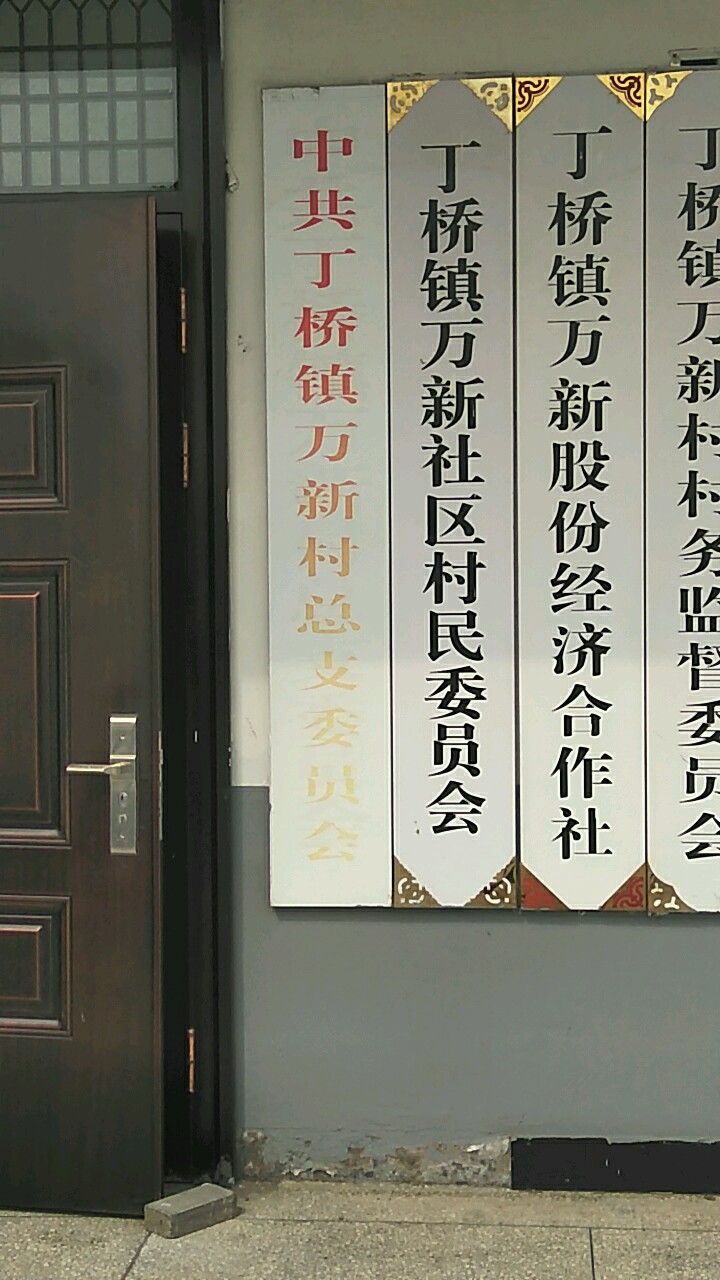 中共丁桥镇万新村总支委员会
丁桥镇万新社区村民委员会
丁桥镇万新股份经济合作社
丁桥镇万新村村务监督委员会